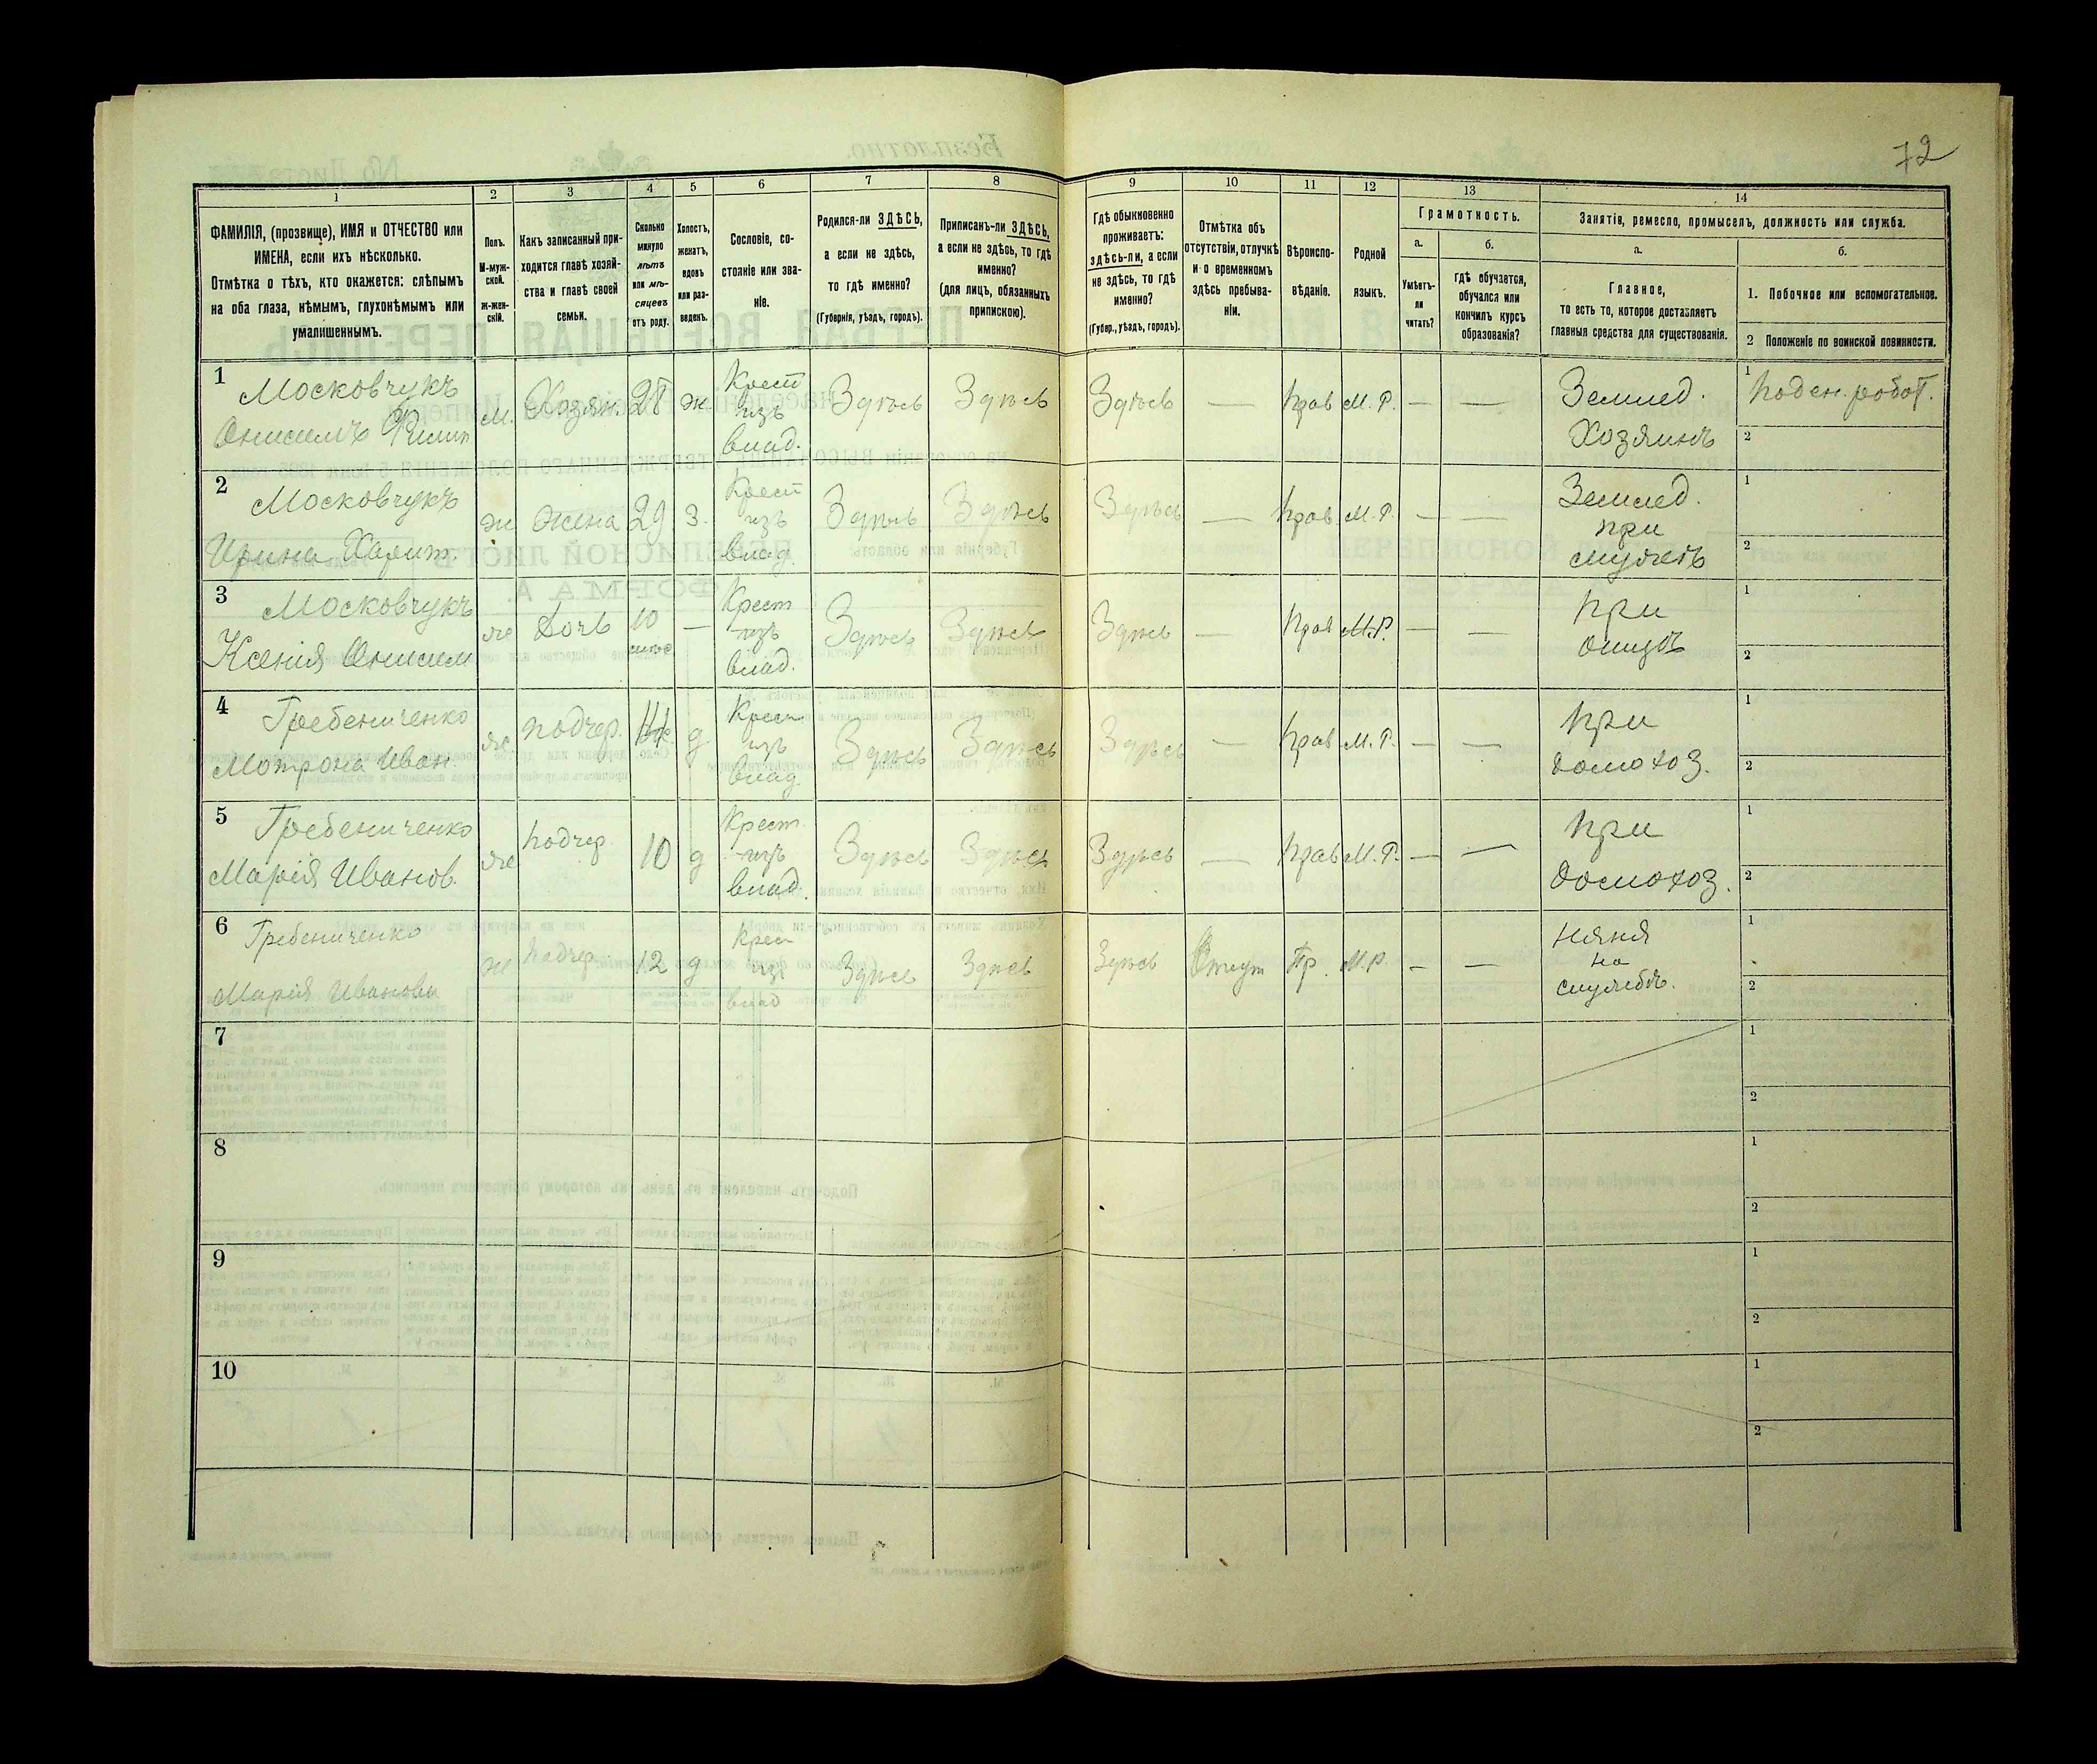 72
1
2
3
4
5
6
7
8
9
10
11
12
13
14
ФАМИЛІЯ, (прозвище), ИМЯ и ОТЧЕСТВО или
ИМЕНА, если ихъ нѣсколько.
Отмѣтка о тѣхъ, кто окажется: слѣпымъ
на оба глаза, нѣмымъ, глухонѣмымъ или
умалишеннымъ.
Полъ.
М-муж-
ской.
Ж-жен-
скій.
Какъ записанный при-
ходится главѣ хозяй-
ства и главѣ своей
семьи.
Сколько
минуло
лѣтъ
или мѣ-
сяцевъ
отъ роду.
Холостъ,
женатъ,
вдовъ
или раз-
веденъ.
Сословіе, со-
стояніе или зва-
ніе.
Родился-ли ЗДѢСЬ,
а если не здѣсь,
то гдѣ именно?
(Губернія, уѣздъ, городъ).
Приписанъ-ли ЗДѢСЬ,
а если не здѣсь, то гдѣ
именно?
(для лицъ, обязанныхъ
припискою).
Гдѣ обыкновенно
проживаетъ:
здѣсь-ли, а если
не здѣсь, то гдѣ
именно?
(Губер., уѣздъ, городъ).
Отмѣтка объ
отсутствіи, отлучкѣ
и о временномъ
здѣсь пребыва-
ніи.
Вѣроиспо-
вѣданіе.
Родной
языкъ.
Грамотность.
а.
Умѣетъ-
ли
читать?
б.
Гдѣ обучается,
обучался или
кончилъ курсъ
образованія?
Занятія, ремесло, промыселъ, должность или служба.
а.
Главное,
то есть то, которое доставляетъ
главныя средства для существованія.
б.
1. Побочное или вспомогательное.
2 Положеніе по воинской повинности.
1
Московчукъ
Онисимъ Филип
М. Хозяин. 28 ж
Крест
изъ
влад.
Здѣсь Здѣсь Здѣсь — Прав М. Р. — —
Землед.
Хозяинъ
1 Поден. работ.
2
2
Московчукъ
Ирина Харит.
ж Жена 29 з.
Крест
изъ
влад.
Здѣсь Здѣсь Здѣсь — Прав М. Р. — —
Землед.
при
мужѣ
1
2
3
Московчукъ
Ксенія Онисим
же Дочь 10 —
Крест
изъ
влад.
Здѣсь Здѣсь Здѣсь — Прав М. Р. — —
при
отцѣ
1
2
4
Гребениченко
Мотрона Иван.
же. подчер. д
Крест
изъ
влад.
Здѣсь Здѣсь Здѣсь — Прав М. Р. — —
при
домохоз.
1
2
5
Гребениченко
Марія Иванов.
же подчер. 10 д
Крест.
изъ
влад.
Здѣсь Здѣсь Здѣсь — Прав М. Р. — —
при
домохоз.
1
2
6
Гребениченко
Марія Иванова
ж подчер. 12 д
Крес
из
влад
Здѣсь Здѣсь Здѣсь Пр. М. Р. — —
няня
на
службѣ.
1
2
7
1
2
8
1
2
9
1
2
10
1
2